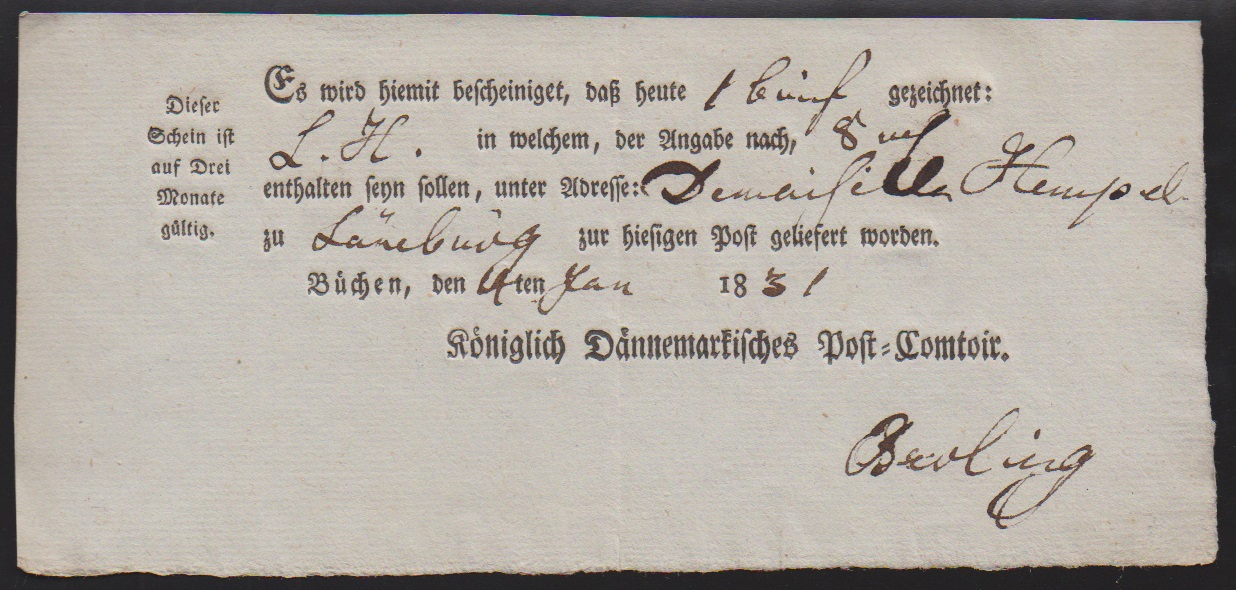 Dieser
Schein ist
auf Drei
Monate
gültig.
Es wird hiemit bescheiniget, daß heute 1 gezeichnet:
L. H. in welchem, der Angabe nach, 8
enthalten seyn sollen, unter Adresse: Demoiselle Hempel
zu Lüneburg zur hiesigen Post geliefert worden.
Büchen, den 4ten Jan 1831
Königlich Dännemarkisches Post-Comtoir.
Berling